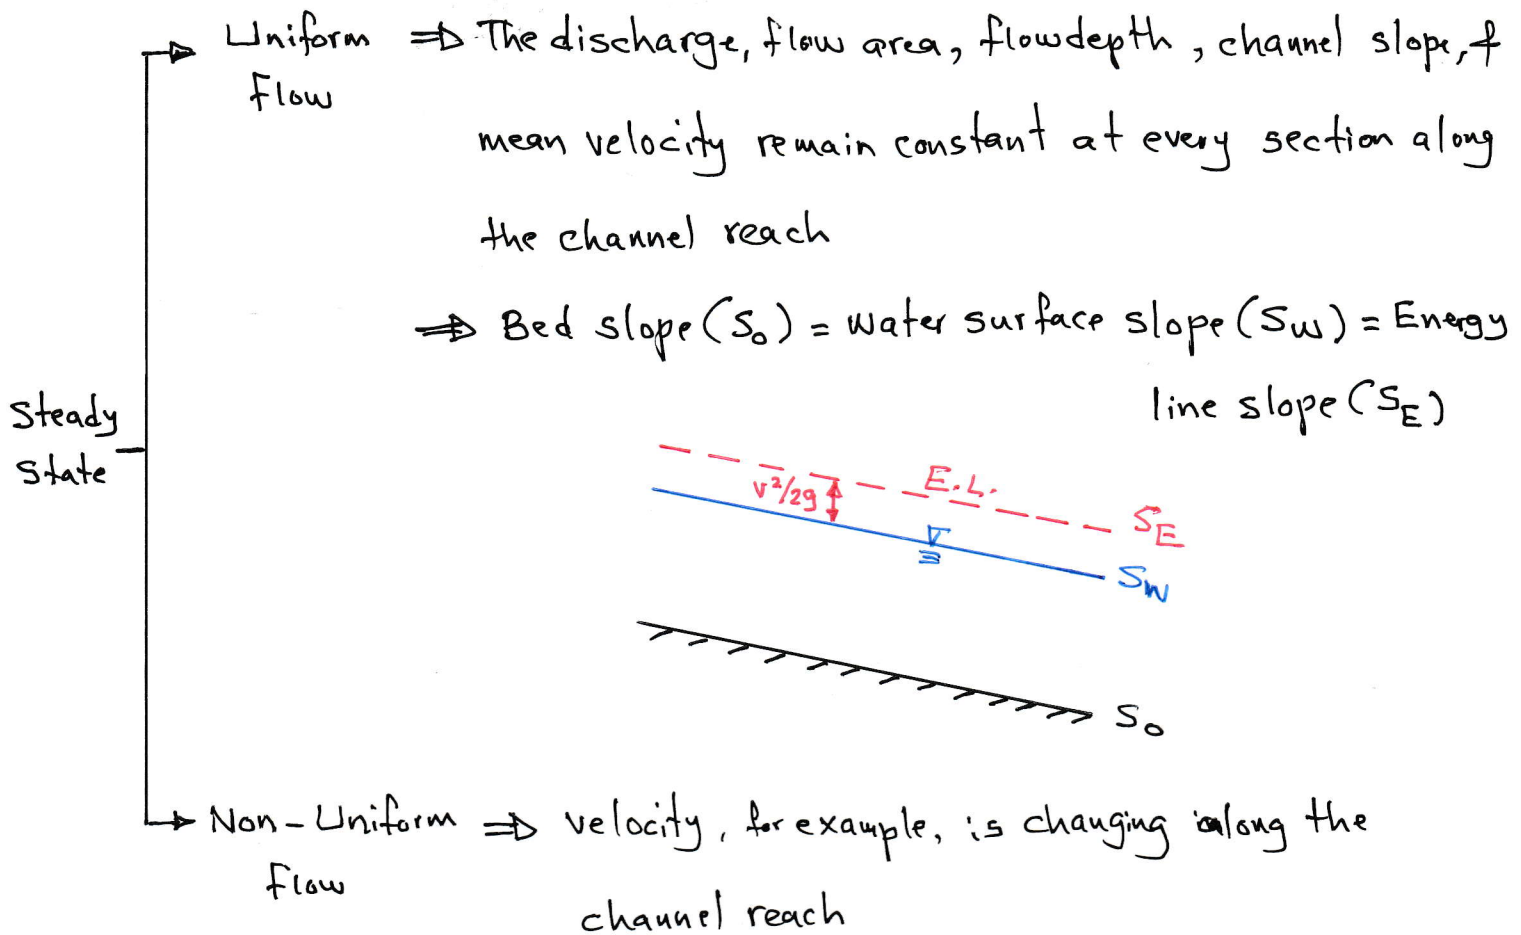 Uniform ⇒ The discharge, flow area, flow depth, channel slope, &
Flow
mean velocity remain constant at every section along
the channel reach
⇒ Bed slope (S₀) = Water surface slope (Sw) = Energy
line slope (S_E)
Steady
State
E.L.
V²/2g
S_E
S_W
S₀
Non-Uniform ⇒ velocity, for example, is changing along the
Flow
channel reach